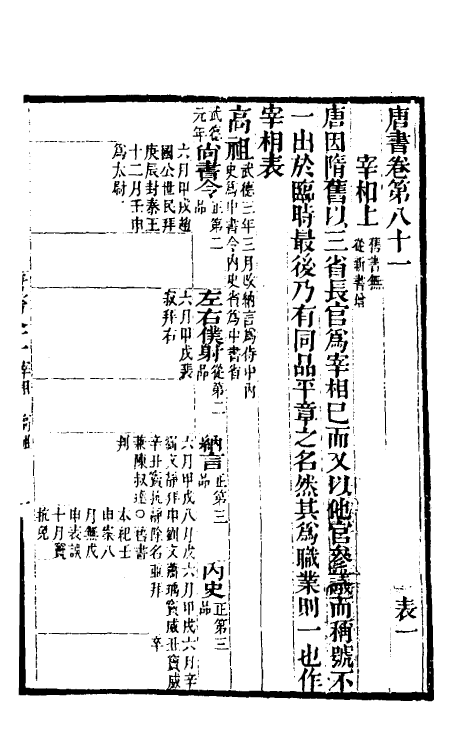 唐書卷第八十一　表一
宰相上　舊書無從新書增
唐因隋舊以三省長官爲宰相已而又以他官參議而稱號不
一出於臨時最後乃有同品平章之名然其爲職業則一也作
宰相表
高祖　武德三年三月改納言爲侍中內
史爲中書令內史省爲中書省
武德元年　尚書令　正第二品　左右僕射　從第二品　納言　正第三品　內史　正第三品
六月甲戌趙
國公世民拜
庚辰封秦王
十二月壬申
爲太尉
六月甲戌裴
寂拜右
六月甲戌
劉文靜拜
八月戊申
辛丑竇
靜除名
兼陳叔達
舊書
本紀壬
申表誤
十月竇
抗免
判
六月甲戌
蕭瑀竇威
並拜
六月辛
丑竇威
卒